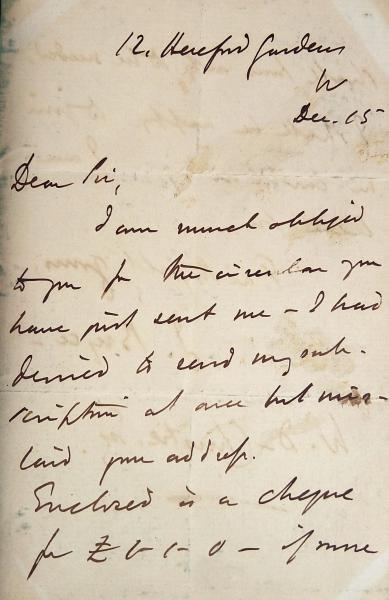 12. Hereford Gardens
W
Dec. 15
Dear Sir,
I am much obliged
to you for the circular you
have just sent me - I had
desired to send my sub-
scription at once but mis-
laid your address.
Enclosed is a cheque
for £ - 1 - 0 - if more